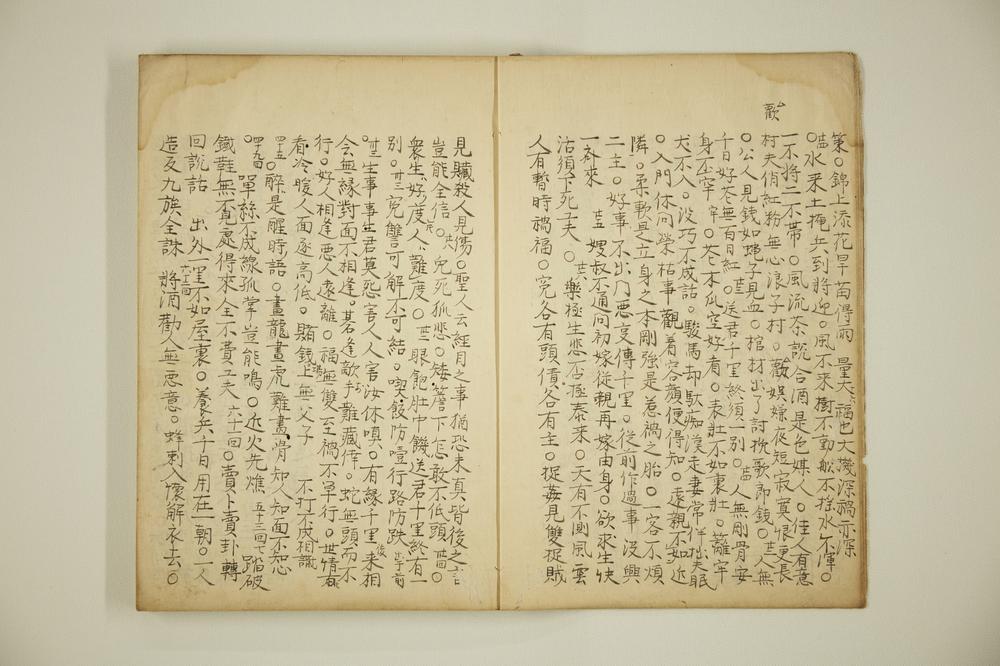 歡
策○錦上添花旱苗得雨 量大福也大機深禍亦深
○苗水來土掩兵到將迎○風不來樹不動船不搖水不渾○
一不將二不帶○風流茶說合酒是色媒人○佳人有意
村夫俏紅粉無心浪子村○歡娛嫌夜短寂寞恨更長
○公人見錢如蠅子見血○棺材出了討挽歌郎錢○人無
千日好花無百日紅○送君千里終須一別○人無剛骨安
身不牢○花木瓜空好看○表壯不如裏壯○籬牢
犬不入○沒巧不成話○駿馬却馱痴漢走妻常伴拙夫眠
○入門休問榮枯事觀着容顏便得知○遠親不如近
隣○柔軟是立身之本剛強是惹禍之胎○一客不煩
二主○好事不出門惡事傳千里○從前作過事沒興
一齊來 嫂叔不通問初嫁從親再嫁由身○欲求生快
活須下死工夫○樂極生悲否極泰來○天有不測風雲
人有暫時禍福○冤各有頭債各有主○捉姦見雙捉賊
見贓殺人見傷○聖人云經目之事猶恐未真背後之言
豈能全信○兔死狐悲○矮簷下怎敢不低頭
衆生好度人難度○眼飽肚中饑送君千里終有一
別○卅三冤讐可解不可結○喫飯防噎行路防跌 前
生事事生君莫怨害人人害汝休嗔○有緣千里來相
會無緣對面不相逢○若逢敵手難藏倖○蛇無頭而不
行○好人相逢惡人遠離○福無雙至禍不單行○世情看
看冷暖人面逐高低○賭錢場上無父子 不打不成相識
四五○醉是醒時語○畫龍畫虎難畫骨知人知面不知心
○四十九四單絲不成線孤掌豈能鳴○近火先燋 五十三四七 踏破
鐵鞋無覓處得來全不費工夫 六十一回○賣卜賣卦轉
回說話 出外一里不如屋裏○養兵千日用在一朝○一人
造反九族全誅 將酒勸人無惡意○蜂刺入懷解衣去○